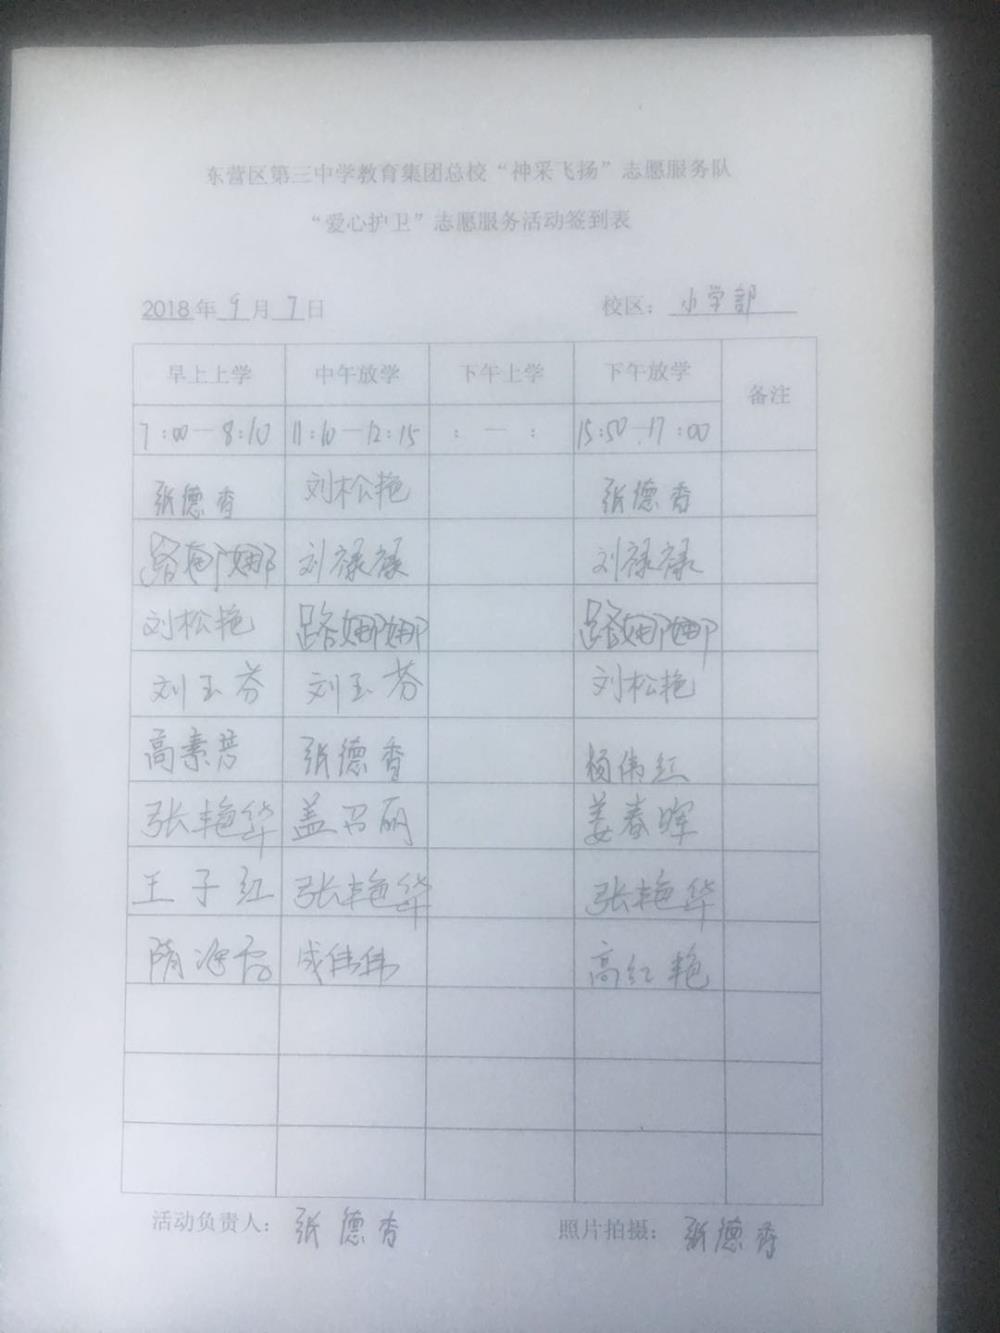 东营区第三中学教育集团总校“神采飞扬”志愿服务队
“爱心护卫”志愿服务活动签到表
2018年 9 月 7 日 校区：小学部
早上上学 中午放学 下午上学 下午放学 备注
7:00—8:10 11:10—12:15 : — : 15:50-17:00
张德香 刘松艳 张德香
路娜娜 刘禄禄 刘禄禄
刘松艳 路娜娜 路娜娜
刘玉芬 刘玉芬 刘松艳
高素芳 张德香 杨伟红
张艳华 盖召丽 姜春晖
王子红 张艳华 张艳华
隋海霞 成伟伟 高红艳
活动负责人：张德香 照片拍摄：张德香